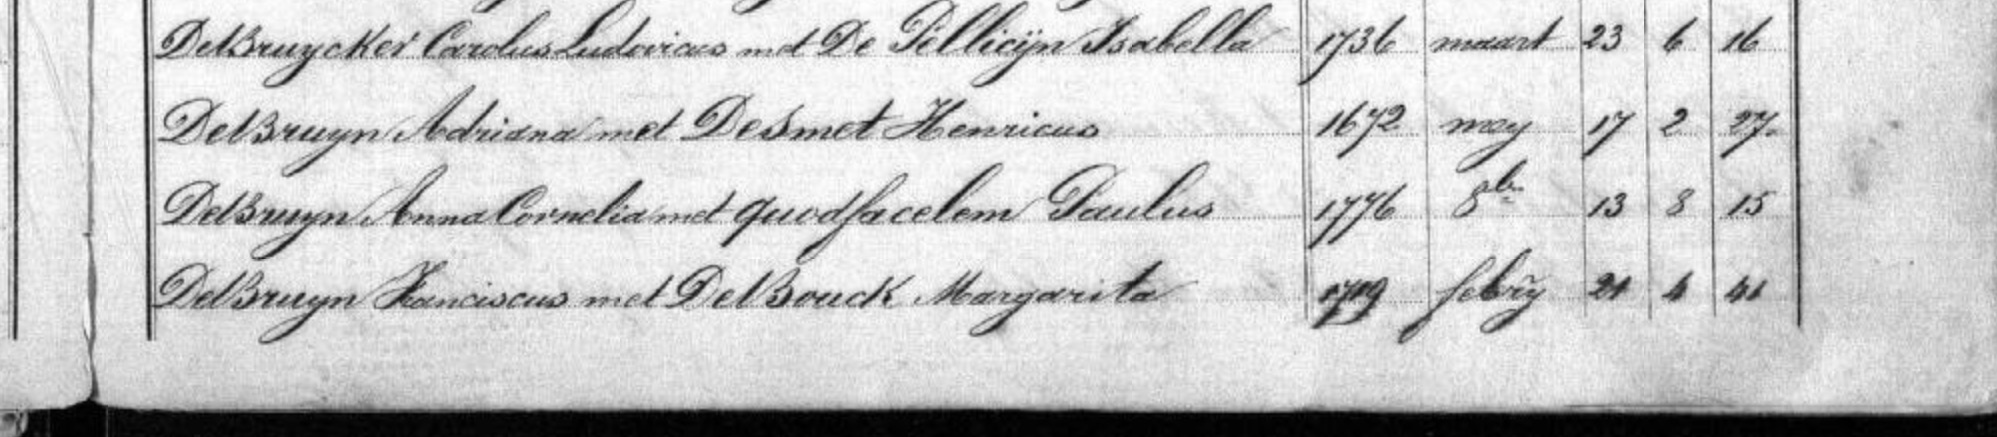 DeBruycker Carolus Ludovicus met De Pellicijn Isabella 1736 maart 23 6 16
DeBruyn Adriana met Desmet Henricus 1672 mey 17 2 27.
DeBruyn Anna Cornelia met quodfacelem Paulus 1776 8br 13 8 15
DeBruyn Franciscus met DeBouck Margarita 1719 febry 21 4 41